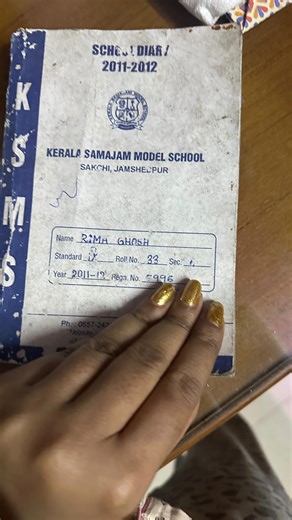 SCHOOL DIARY
2011-2012
KSMS
KERALA SAMAJAM MODEL SCHOOL
SAKCHI, JAMSHEDPUR
Name RIMA GHOSH
Standard IX Roll No. 33 Sec.
Year 2011-12 Regn. No. 5996
Ph.: 0657-242